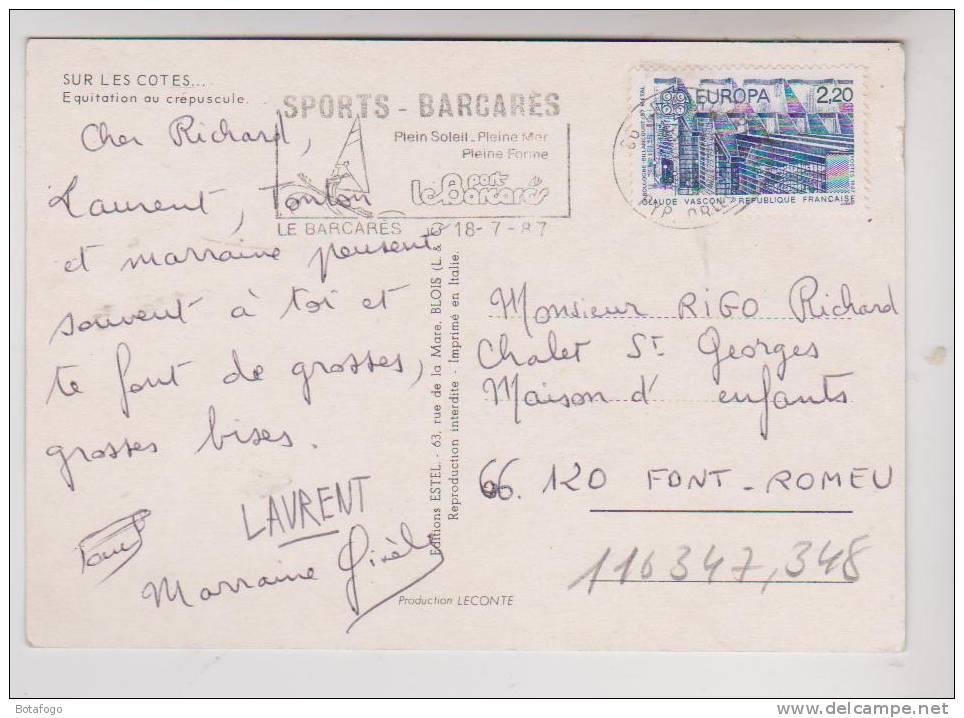 SUR LES COTES...
Equitation au crépuscule.
SPORTS - BARCARÈS
Plein Soleil - Pleine Mer
Pleine Forme
port
le Barcarès
LE BARCARÈS 18-7-87
EUROPA 2,20
CLAUDE VASCONI REPUBLIQUE FRANÇAISE
Cher Richard,
Laurent, Tonton
et marraine pensent
souvent à toi et
te font de grosses,
grosses bises.
LAURENT
Marraine Gisèle
Editions ESTEL - 63, rue de la Mare, BLOIS (L. & C.)
Reproduction interdite - Imprimé en Italie.
Production LECONTE
Monsieur RIGO Richard
Chalet St Georges
Maison d' enfants
66.120 FONT-ROMEU
110347,348
Botafogo
delcampe.net